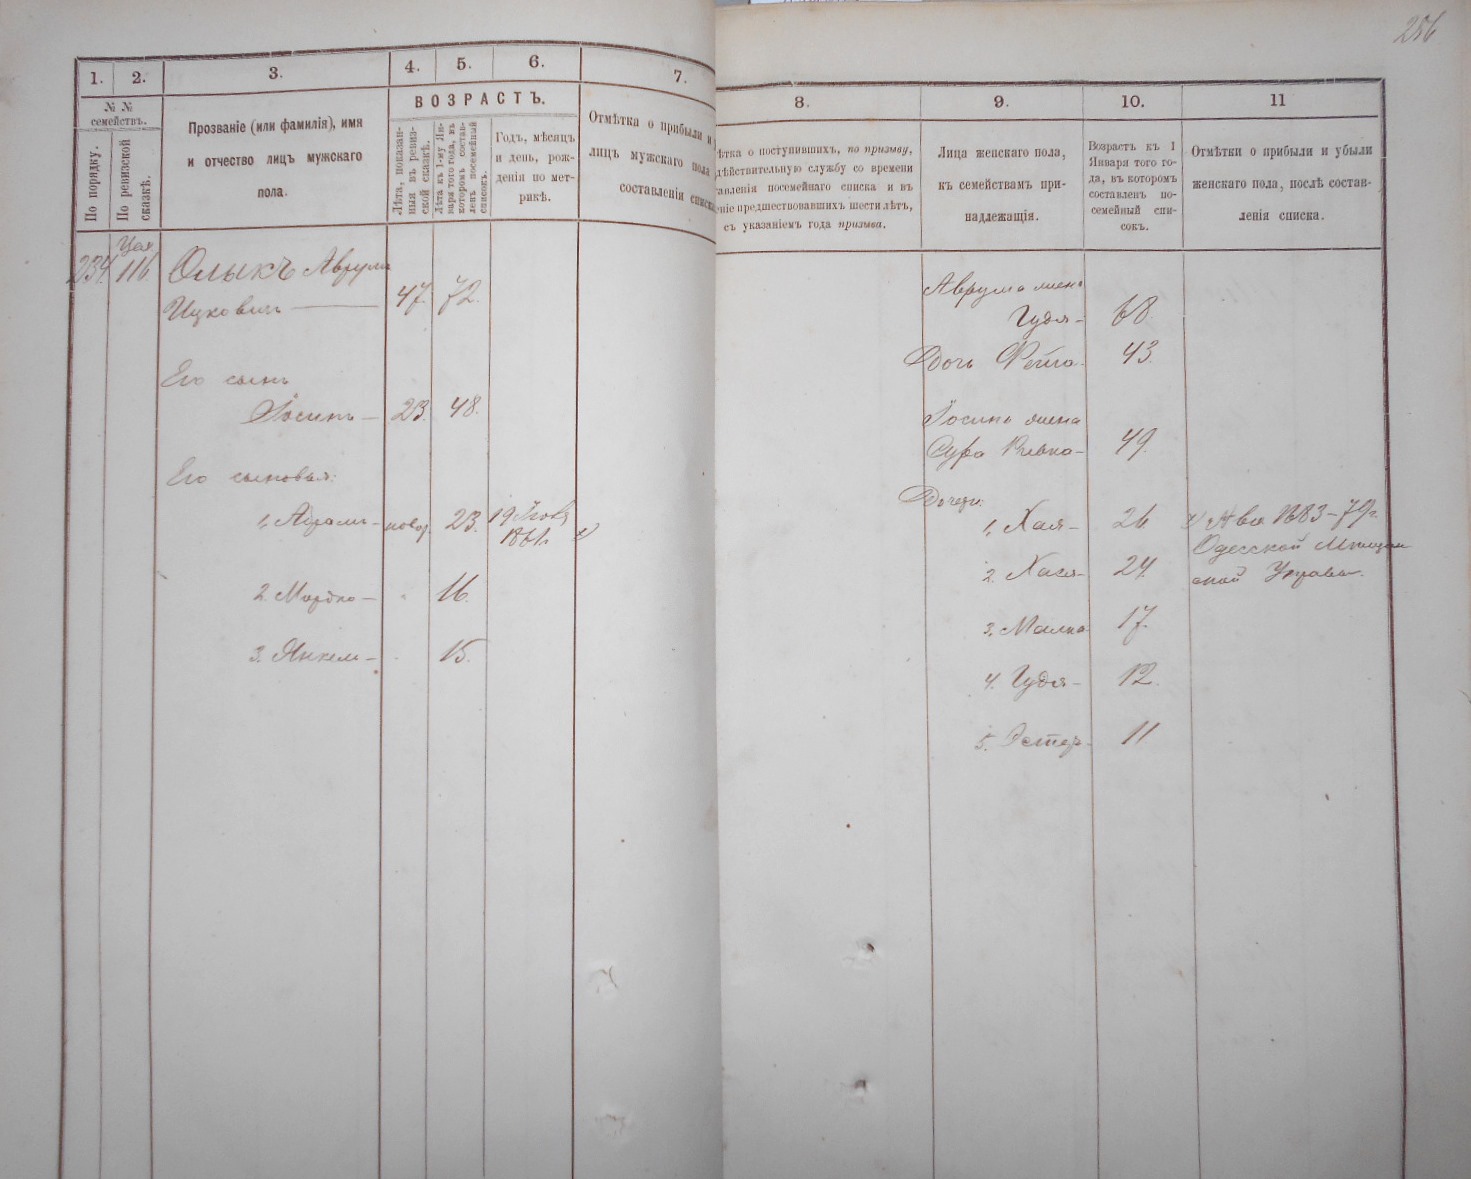 256
1. 2. 3. 4. 5. 6. 7.
8. 9. 10. 11
№ №
семействъ.
По порядку.
По ревизской
сказкѣ.
Прозваніе (или фамилія), имя
и отчество лицъ мужскаго
пола.
ВОЗРАСТЪ.
Лѣта, показан-
ныя въ ревиз-
ской сказкѣ.
Лѣта къ 1-му Ян-
варя того года, въ
которомъ состав-
ленъ посемейный
списокъ.
Годъ, мѣсяцъ
и день, рож-
денія по мет-
рикѣ.
Отмѣтка о прибыли и
лицъ мужскаго пола
составленія списка
ѣтка о поступившихъ, по призыву,
дѣйствительную службу со времени
тавленія посемейнаго списка и въ
еніе предшествовавшихъ шести лѣтъ,
съ указаніемъ года призыва.
Лица женскаго пола,
къ семействамъ при-
надлежащія.
Возрастъ къ 1
Января того го-
да, въ которомъ
составленъ по-
семейный спи-
сокъ.
Отмѣтки о прибыли и убыли
женскаго пола, послѣ состав-
ленія списка.
234. 116. Олыкъ Аврумъ
Ицковичъ 47. 72.
Его сынъ
Іосипъ 23. 48.
Его сыновья:
1, Абрамъ новор. 23. 19
1861г. x)
2. Мордко 16.
3. Янкель 15.
Аврума жена
Гудя 68.
Дочь Фейга 43.
Іосипа жена
Сура Ривка 49.
Дочери:
1, Хая 26 x) 1883-79г.
Одесской
ской Управы.
2. Хася 24.
3. Малка 17.
4. Гудя 12.
5. Эстер 11